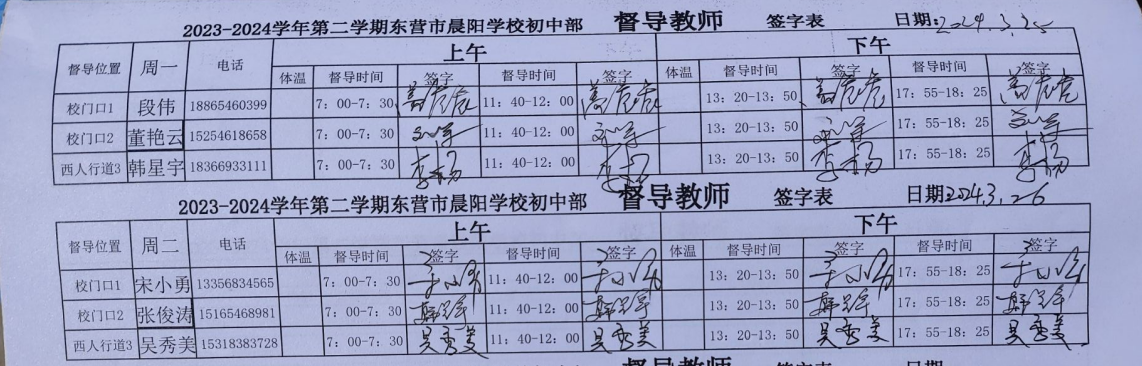 2023-2024学年第二学期东营市晨阳学校初中部 督导教师 签字表 日期:2024.3.25
督导位置 周一 电话 上午 下午
体温 督导时间 签字 督导时间 签字 体温 督导时间 签字 督导时间 签字
校门口1 段伟 18865460399 7:00-7:30 11:40-12:00 13:20-13:50 17:55-18:25
校门口2 董艳云 15254618658 7:00-7:30 11:40-12:00 13:20-13:50 17:55-18:25
西人行道3 韩星宇 18366933111 7:00-7:30 李杨 11:40-12:00 李杨 13:20-13:50 李杨 17:55-18:25 李杨
2023-2024学年第二学期东营市晨阳学校初中部 督导教师 签字表 日期2024.3.26
督导位置 周二 电话 上午 下午
体温 督导时间 签字 督导时间 签字 体温 督导时间 签字 督导时间 签字
校门口1 宋小勇 13356834565 7:00-7:30 11:40-12:00 13:20-13:50 17:55-18:25
校门口2 张俊涛 15165468981 7:00-7:30 11:40-12:00 13:20-13:50 17:55-18:25
西人行道3 吴秀美 15318383728 7:00-7:30 吴秀美 11:40-12:00 吴秀美 13:20-13:50 吴秀美 17:55-18:25 吴秀美